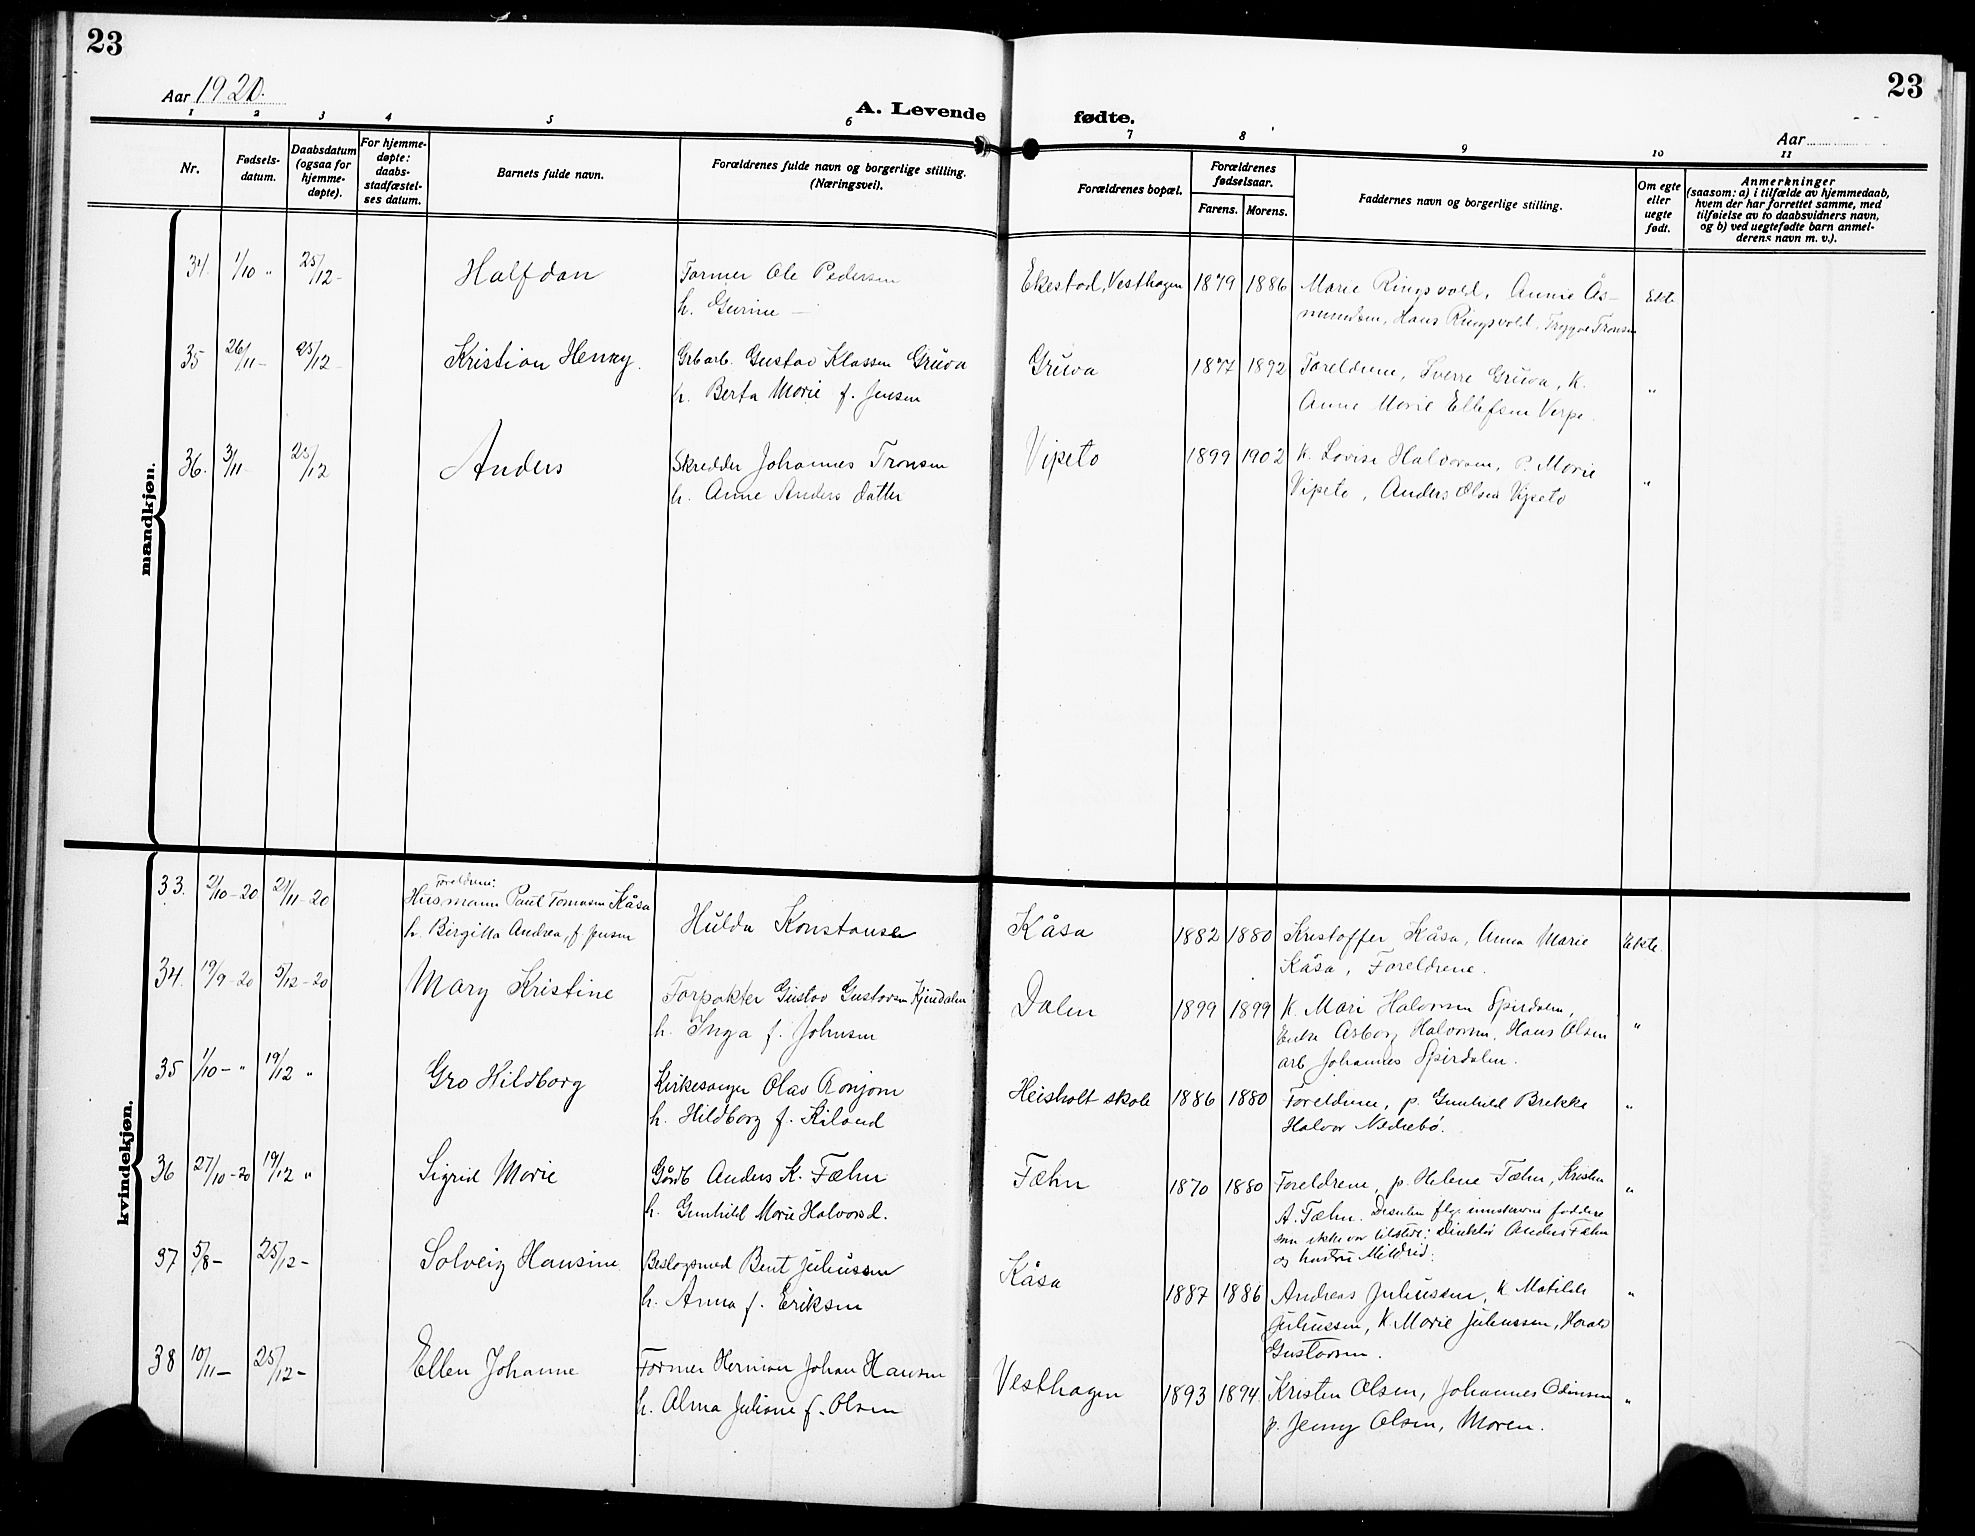 23
23
Aar 1920.
A. Levende fødte.
Aar
1 2 3 4 5 6 7 8 9 10 11
Nr.
Fødsels-
datum.
Daabsdatum
(ogsaa for
hjemme-
døpte).
For hjemme-
døpte:
daabs-
stadfæstel-
ses datum.
Barnets fulde navn.
Forældrenes fulde navn og borgerlige stilling.
(Næringsvei).
Forældrenes bopæl.
Forældrenes
fødselsaar.
Farens. Morens.
Faddernes navn og borgerlige stilling.
Om egte
eller
uegte
født.
Anmerkninger
(saasom: a) i tilfælde av hjemmedaab,
hvem der har forrettet samme, med
tilføielse av to daabsvidners navn,
og b) ved uegtefødte barn anmel-
derens navn m. v.).
mandkjøn.
34. 1/10 " 25/12- Halfdan Former Ole Pedersen Ekestad, Vesthagen 1879 1886 Marie Ringsvold, Annie Ås- Ekte
h. Gurine — mundsen, Hans Ringsvold, Trygve Tronsen
35 26/11- 25/12- Kristian Henry. Grbarb. Gustav Klassen Gruva Gruva 1877 1892 Foreldrene, Sverre Gruva, K. "
h. Berta Marie f. Jensen Anne Marie Ellefsen Verpe.
36. 3/11 25/12 Anders Skredder Johannes Tronsen Vipeto 1899 1902 K. Lovise Halvorsen, P. Marie "
h. Anne Anders datter Vipeto, Anders Olsen Vipeto
kvindekjøn.
33. 2/10-20 21/11-20 Foreldrene:
Husmann Paul Tomasen Kåsa Hulda Konstanse Kåsa 1882 1880 Kristoffer Kåsa, Anna Marie Ekte.
h. Birgitta Andrea, f Jensen Kåsa, Foreldrene.
34. 19/9-20 5/12-20 Mary Kristine Forpakter Gustav Gustavsen Kjendalen Dalen 1899 1899 K. Mari Halvorsen Spirdalen, "
h. Inga f. Johnsen Enke Asborg Halvorsen, Hans Olsen
arb Johannes Spirdalen.
35 1/10- " 19/12 " Gro Hildborg Kirkesanger Olav Ronjom Heisholt skole 1886 1880 Foreldrene, p. Gunhild Brekke "
h. Hildborg f. Kiland Halvor Nedrebø.
36 27/10-20 19/12 " Sigrid Marie Gårdb Anders K. Fæhn Fæhn 1870 1880 Foreldrene, p. Helene Fæhn, Kristen "
h. Gunhild Marie Halvorsd. A. Fæhn. Desuten flg. innskrevne faddere
som ikke var tilstede: Direktør Anders Fæhn
og hustru Mildrid.
37 5/8- 25/12- Solveig Hansine Beslagsmed Bent Juliussen Kåsa 1887 1886 Andreas Juliussen, K Matilde "
h. Anna f. Eriksen Juliussen, K. Marie Juliussen, Harald
Gustavsen.
38 10/11- 25/12- Ellen Johanne Former Herman Johan Hansen Vesthagen 1893 1894. Kristen Olsen, Johannes Odinsen "
h. Alma Juliane f. Olsen p. Jenny Olsen, Moren.